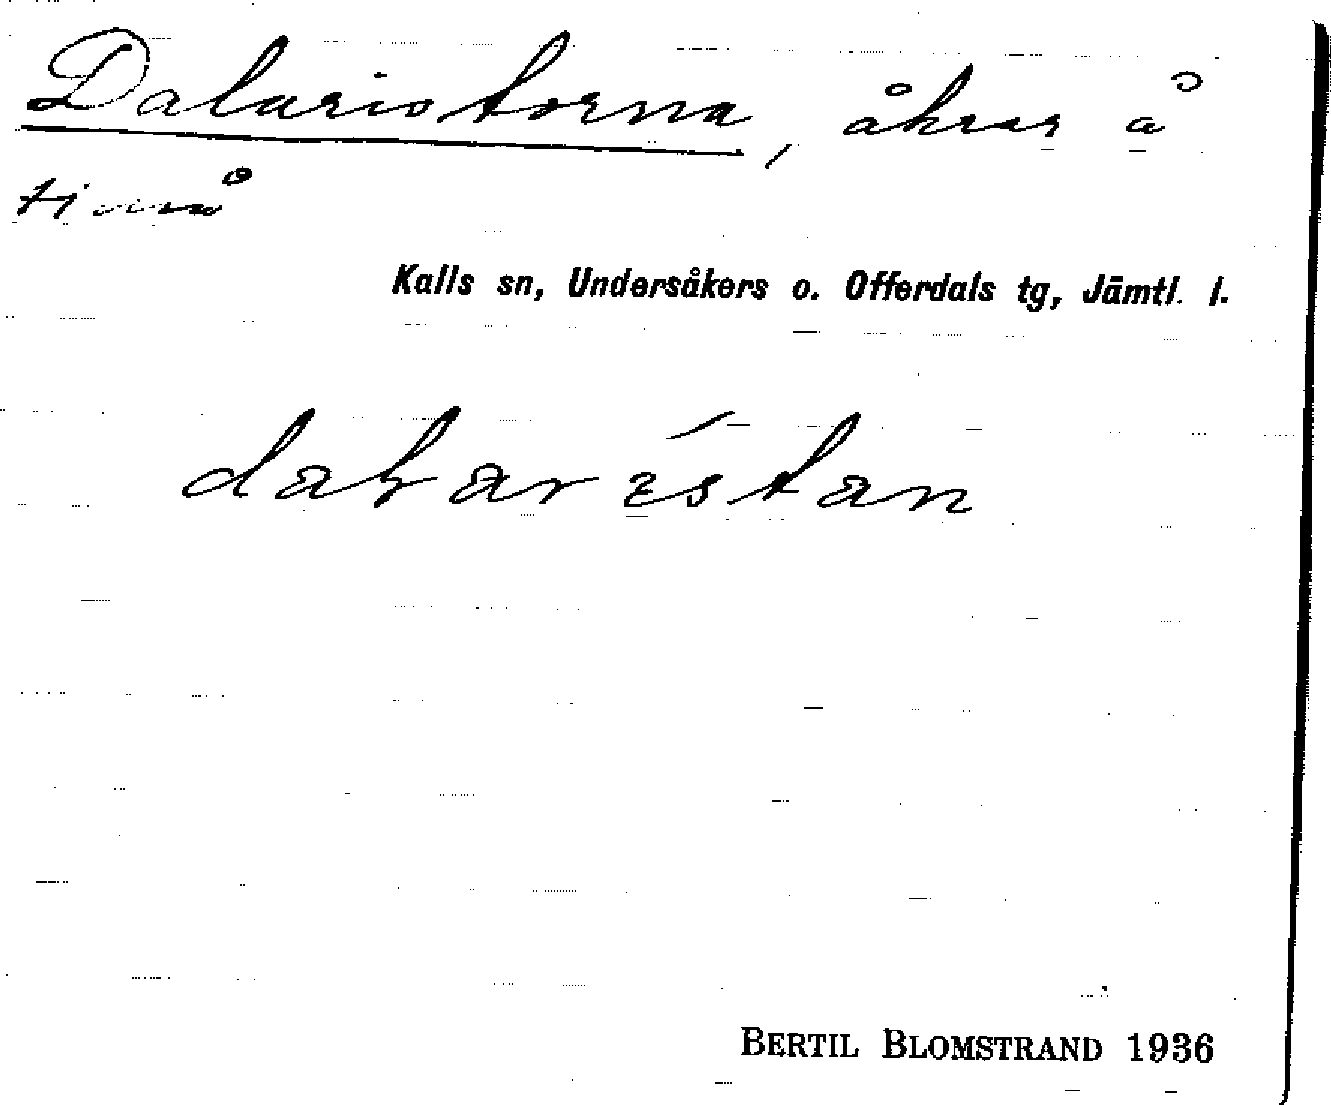 Dalaristorna, åkrar å
Kalls sn, Undersåkers o. Offerdals tg, Jämtl. l.
BERTIL BLOMSTRAND 1936